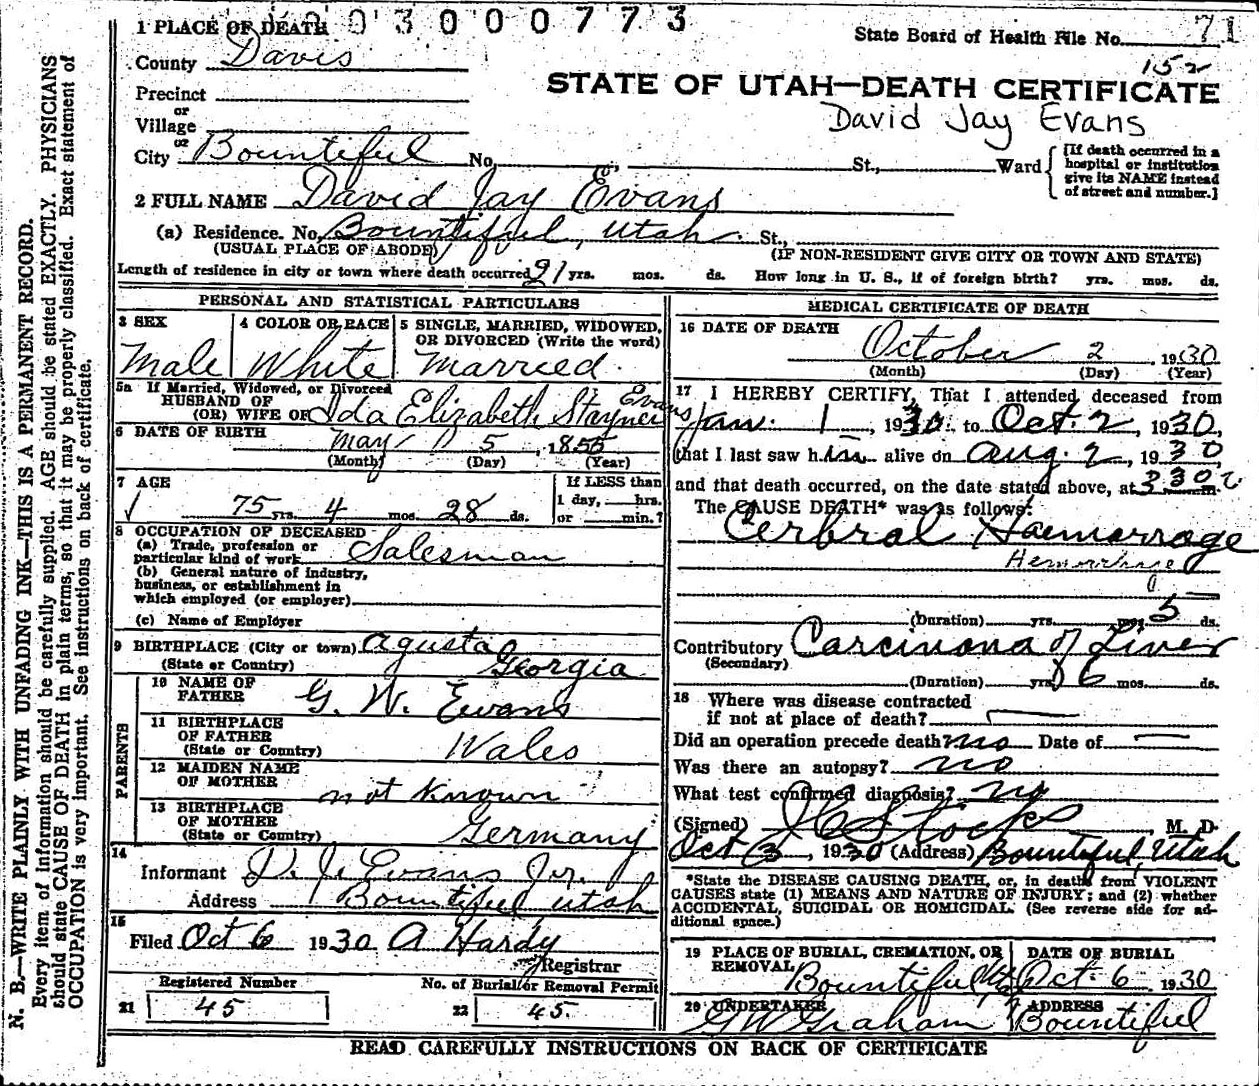 3000773
1 PLACE OF DEATH
State Board of Health File No. 71
County Davis
152
STATE OF UTAH—DEATH CERTIFICATE
Precinct
or
Village
David Jay Evans
or
City Bountiful No. St., Ward
[If death occurred in a
hospital or institution
give its NAME instead
of street and number.]
2 FULL NAME David Jay Evans
(a) Residence. No. Bountiful, Utah. St.,
(USUAL PLACE OF ABODE) (IF NON-RESIDENT GIVE CITY OR TOWN AND STATE)
Length of residence in city or town where death occurred 21 yrs. mos. ds. How long in U. S., if of foreign birth? yrs. mos. ds.
PERSONAL AND STATISTICAL PARTICULARS
3 SEX 4 COLOR OR RACE 5 SINGLE, MARRIED, WIDOWED,
OR DIVORCED (Write the word)
Male White Married
5a If Married, Widowed, or Divorced
HUSBAND OF
(OR) WIFE OF Ida Elizabeth Stayner Evans
6 DATE OF BIRTH May 5, 1855
(Month) (Day) (Year)
7 AGE If LESS than
1 day, hrs.
75 yrs. 4 mos. 28 ds. or min.?
8 OCCUPATION OF DECEASED
(a) Trade, profession or
particular kind of work Salesman
(b) General nature of industry,
business, or establishment in
which employed (or employer)
(c) Name of Employer
9 BIRTHPLACE (City or town) Agusta
(State or Country) Georgia
PARENTS
10 NAME OF
FATHER G. W. Evans
11 BIRTHPLACE
OF FATHER
(State or Country) Wales
12 MAIDEN NAME
OF MOTHER not known
13 BIRTHPLACE
OF MOTHER
(State or Country) Germany
14
Informant D. J. Evans Jr.
Address Bountiful Utah
15
Filed Oct 6 1930 A Hardy
Registrar
Registered Number No. of Burial or Removal Permit
21 45 22 45.
MEDICAL CERTIFICATE OF DEATH
16 DATE OF DEATH
October 2 1930
(Month) (Day) (Year)
17 I HEREBY CERTIFY, That I attended deceased from
Jan. 1, 1930 to Oct. 2, 1930,
that I last saw him alive on Aug. 2, 1930
and that death occurred, on the date stated above, at 330 m.
The CAUSE DEATH* was as follows:
Cerbral Haemorrage
Hemorrhage
(Duration) yrs. mos. 5 ds.
Contributory Carcinona of Liver
(Secondary)
(Duration) yrs. 6 mos. ds.
18 Where was disease contracted
if not at place of death?
Did an operation precede death? no Date of
Was there an autopsy? no
What test confirmed diagnosis? no
(Signed) J C Stocks M. D.
Oct 3, 1930 (Address) Bountiful, Utah
*State the DISEASE CAUSING DEATH, or, in deaths from VIOLENT
CAUSES state (1) MEANS AND NATURE OF INJURY; and (2) whether
ACCIDENTAL, SUICIDAL OR HOMICIDAL. (See reverse side for ad-
ditional space.)
19 PLACE OF BURIAL, CREMATION, OR DATE OF BURIAL
REMOVAL Bountiful Oct. 6 1930
20 UNDERTAKER ADDRESS
G W Graham Bountiful
READ CAREFULLY INSTRUCTIONS ON BACK OF CERTIFICATE
N. B.—WRITE PLAINLY WITH UNFADING INK—THIS IS A PERMANENT RECORD.
Every item of information should be carefully supplied. AGE should be stated EXACTLY. PHYSICIANS
should state CAUSE OF DEATH in plain terms, so that it may be properly classified. Exact statement of
OCCUPATION is very important. See instructions on back of certificate.